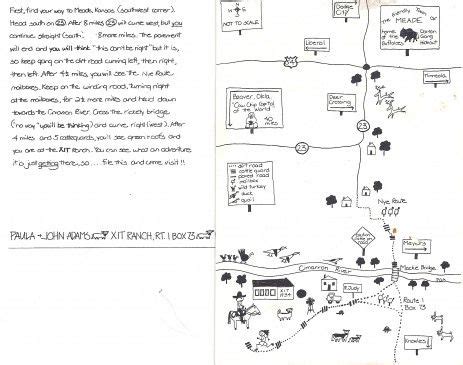 First, find your way to Meade, Kansas (southwest corner).
Head south on 23. After 8 miles 23 will curve west, but you
continue straight (south). 3 more miles. The pavement
will end and you will think "this can't be right" but it is,
so keep going on the dirt road curving left, then right,
then left. After 4½ miles, you will see the Nye Route
mailboxes. Keep on the winding road, turning right
at the mailboxes, for 2½ more miles and head down
towards the Cimarron River. Cross the rickety bridge,
("no way" you'll be thinking) and curve right (west). After
4 miles and 5 cattleguards, you'll see green roofs and
you are at the XIT Ranch. You can see what an adventure
it is just getting there, so.... file this and come visit!!
PAULA + JOHN ADAMS XIT RANCH, RT. 1 BOX 73
N
W
E
S
NOT TO SCALE
Dodge City
The Friendly Town of
MEADE
Home of the Buffaloes
Dalton Gang Hideout
Liberal
Minneola
Beaver, Okla.
"Cow Chip Capitol
of the World"
40 miles
Deer Crossing
23
23
dirt road
cattle guard
paved road
mailbox
wild turkey
duck
quail
Nye Route
Caution
cattle on road
Cimarron River
Mocke Bridge
XIT
R. Judy
Route 1
Box 73
Knowles